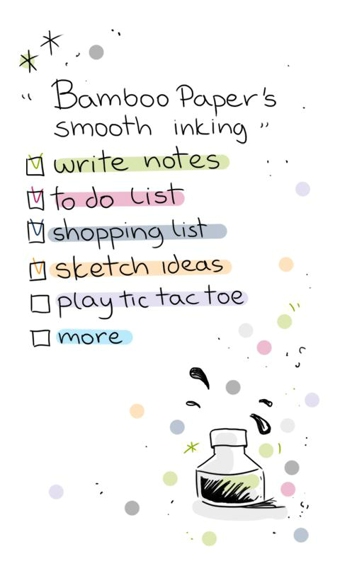 " Bamboo Paper's
smooth inking "
write notes
to do list
shopping list
sketch ideas
play tic tac toe
more